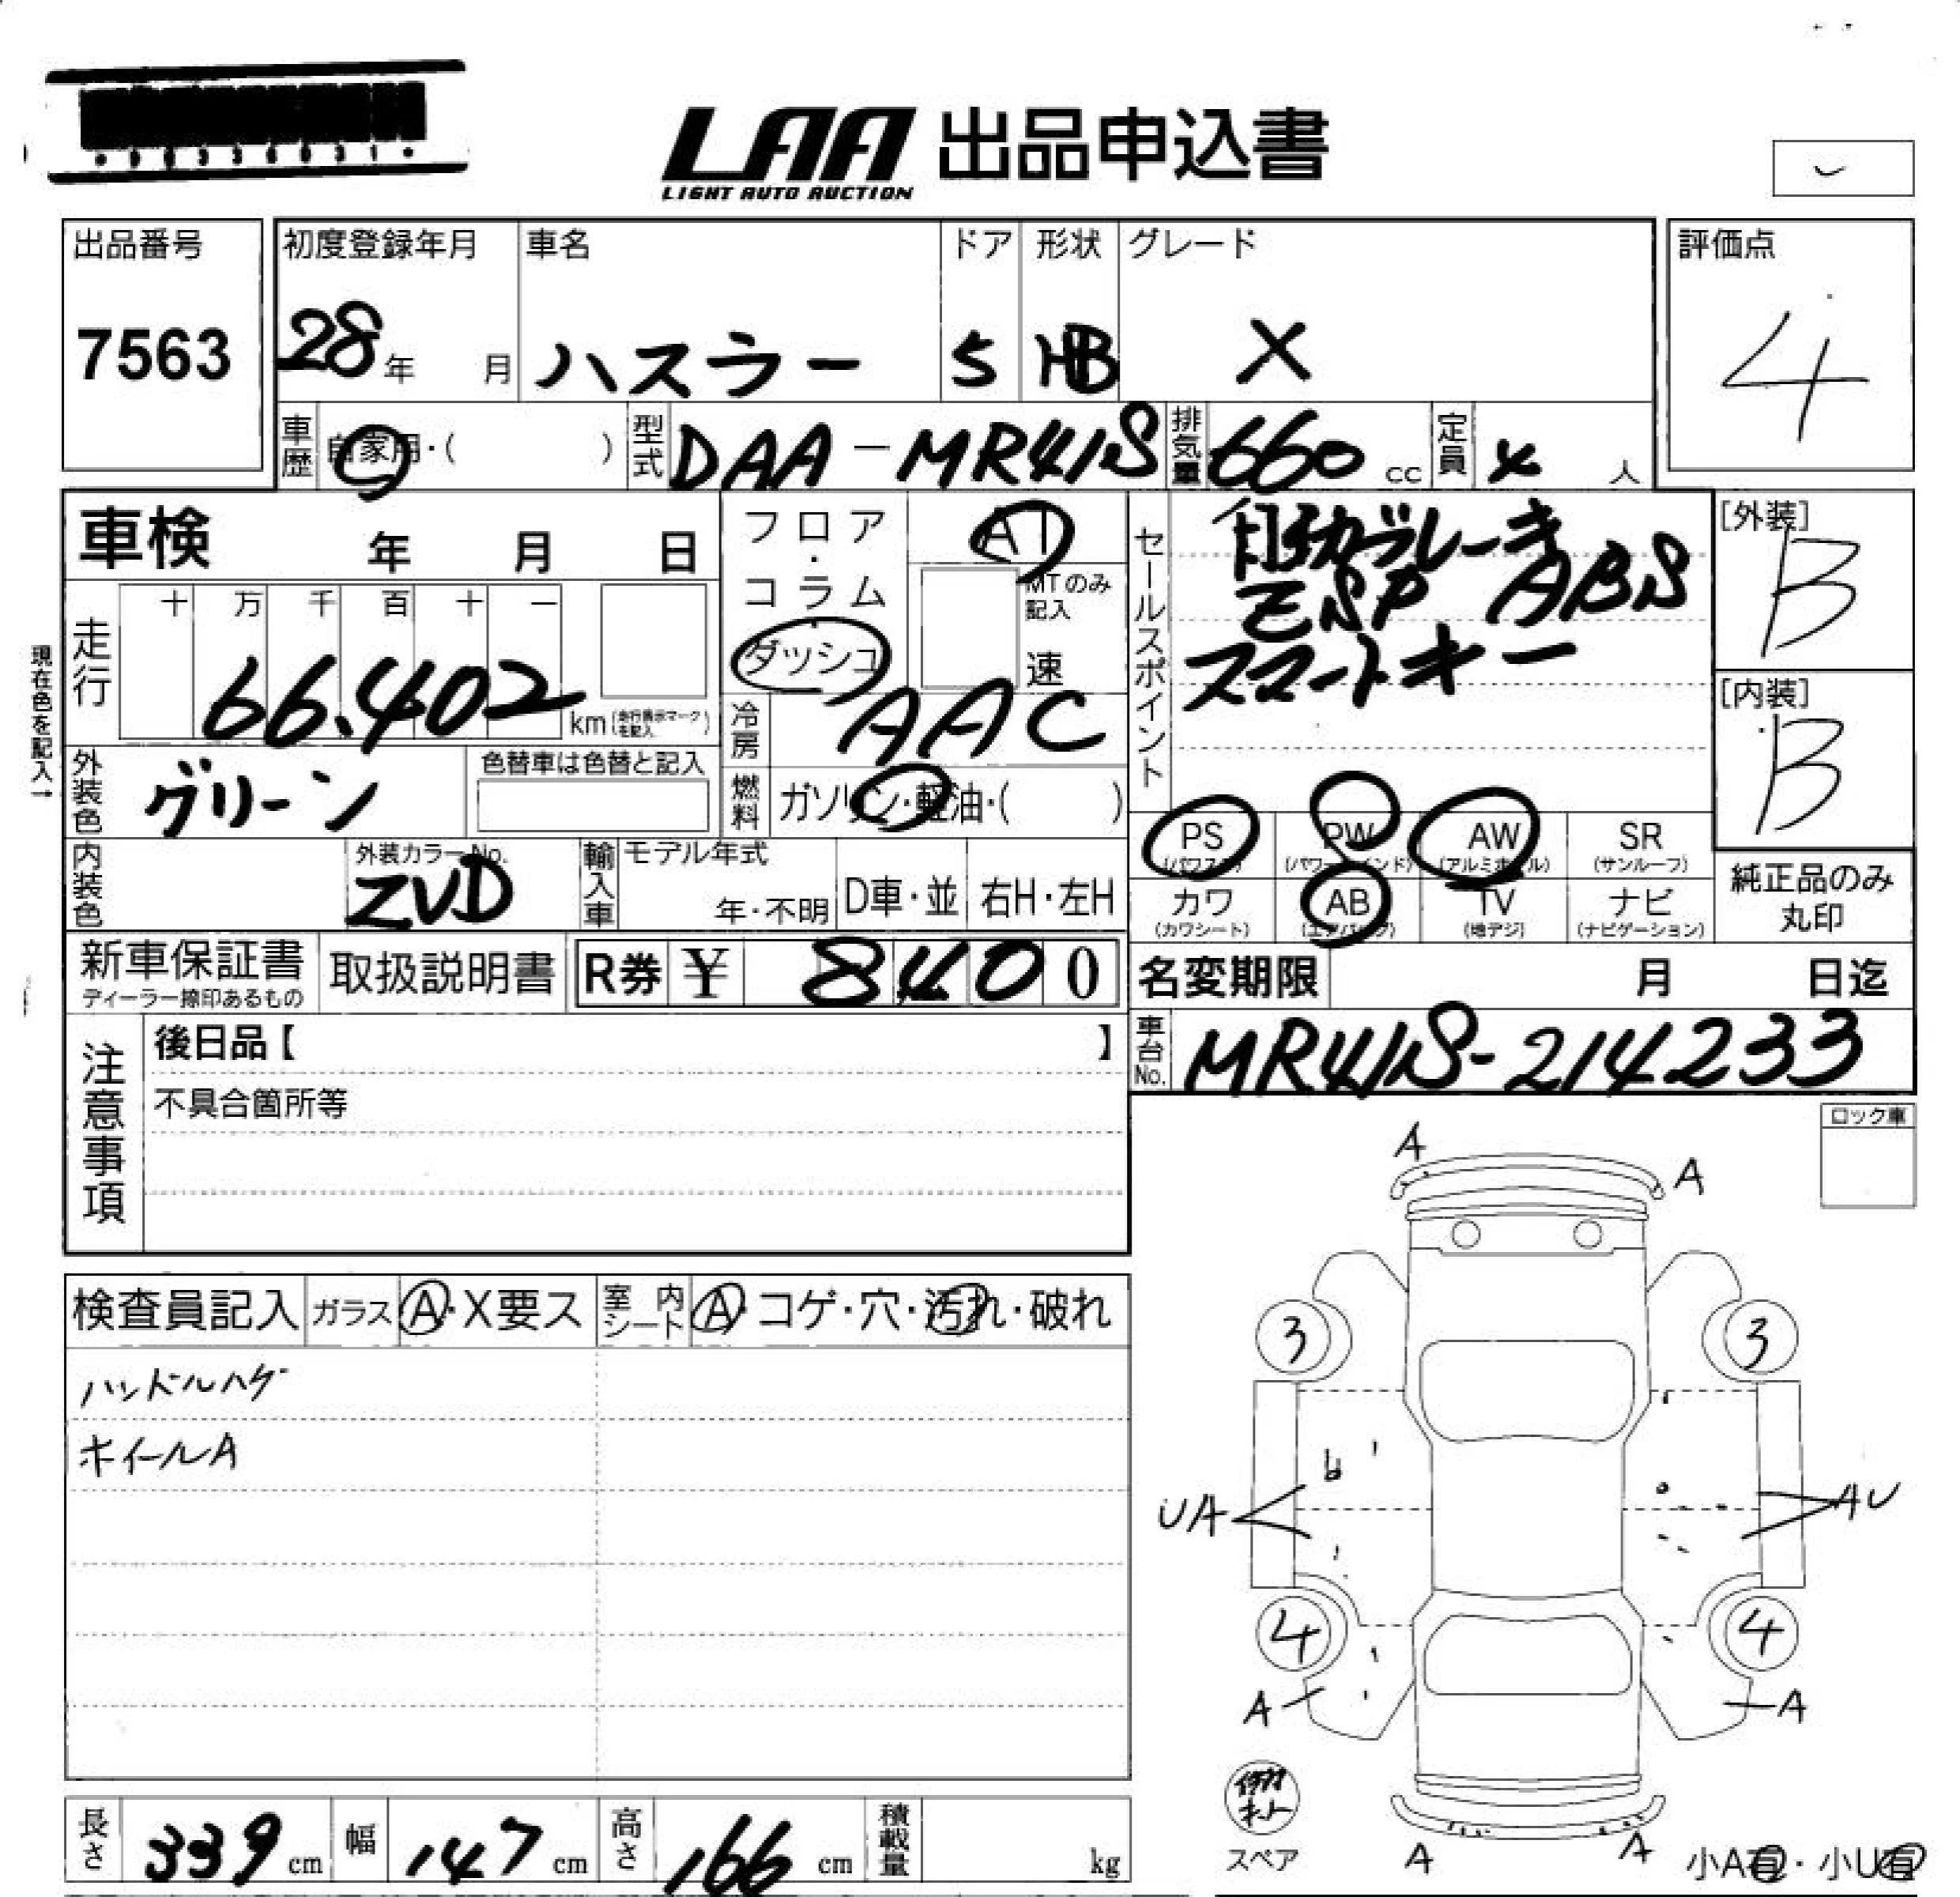 LAA 出品申込書
LIGHT AUTO AUCTION
出品番号 初度登録年月 車名 ドア 形状 グレード 評価点
7563 28年 月 ハスラー 5 HB X 4
車歴 自家用・( ) 型式 DAA-MR41S 排気量 660 cc 定員 4 人
車検 年 月 日
フロア・コラム・ダッシュ
AT
MTのみ記入
速
セールスポイント
自動ブレーキ
ESP ABS
スマートキー
[外装]
B
[内装]
B
現在色を記入→
走行 十 万 千 百 十 一
66.402 km (走行表示マークを記入)
冷房 AAC
外装色 グリーン 色替車は色替と記入
燃料 ガソリン・軽油・( )
PS (パワステ) PW (パワーウインド) AW (アルミホイル) SR (サンルーフ)
カワ (カワシート) AB (エアバッグ) TV (地デジ) ナビ (ナビゲーション)
純正品のみ
丸印
内装色 外装カラーNo. ZVD 輸入車 モデル年式 年・不明 D車・並 右H・左H
新車保証書 取扱説明書 R券 ¥ 8400
ディーラー捺印あるもの
名変期限 月 日迄
車台No. MR41S-214233
注意事項
後日品【 】
不具合箇所等
ロック車
検査員記入 ガラス A・X要ス 室内シート A・コゲ・穴・汚れ・破れ
ハンドルハゲ
ホイールA
A A
3 3
UA AU
4 4
A A
スペア
A A
小A有・小U有
長さ 339 cm 幅 147 cm 高さ 166 cm 積載量 kg